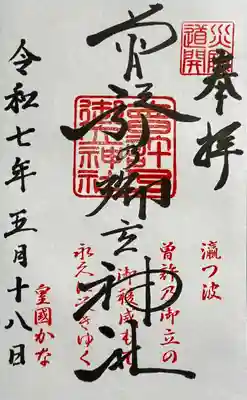 奉拝
曽許乃御立神社
令和七年五月十八日
瀛つ波
曽許乃御立の
御稜威もて
永久に
ゆく
皇國かな
曽許乃
御立神社
道開